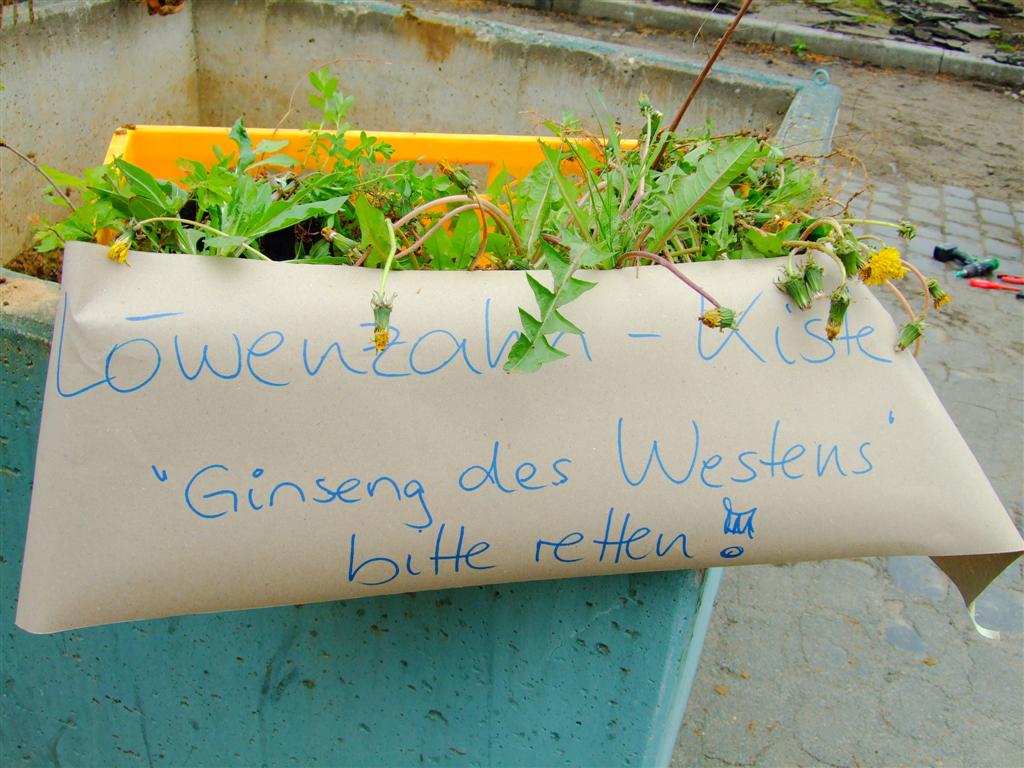 Löwenzahn - Kiste
"Ginseng des Westens"
bitte retten!